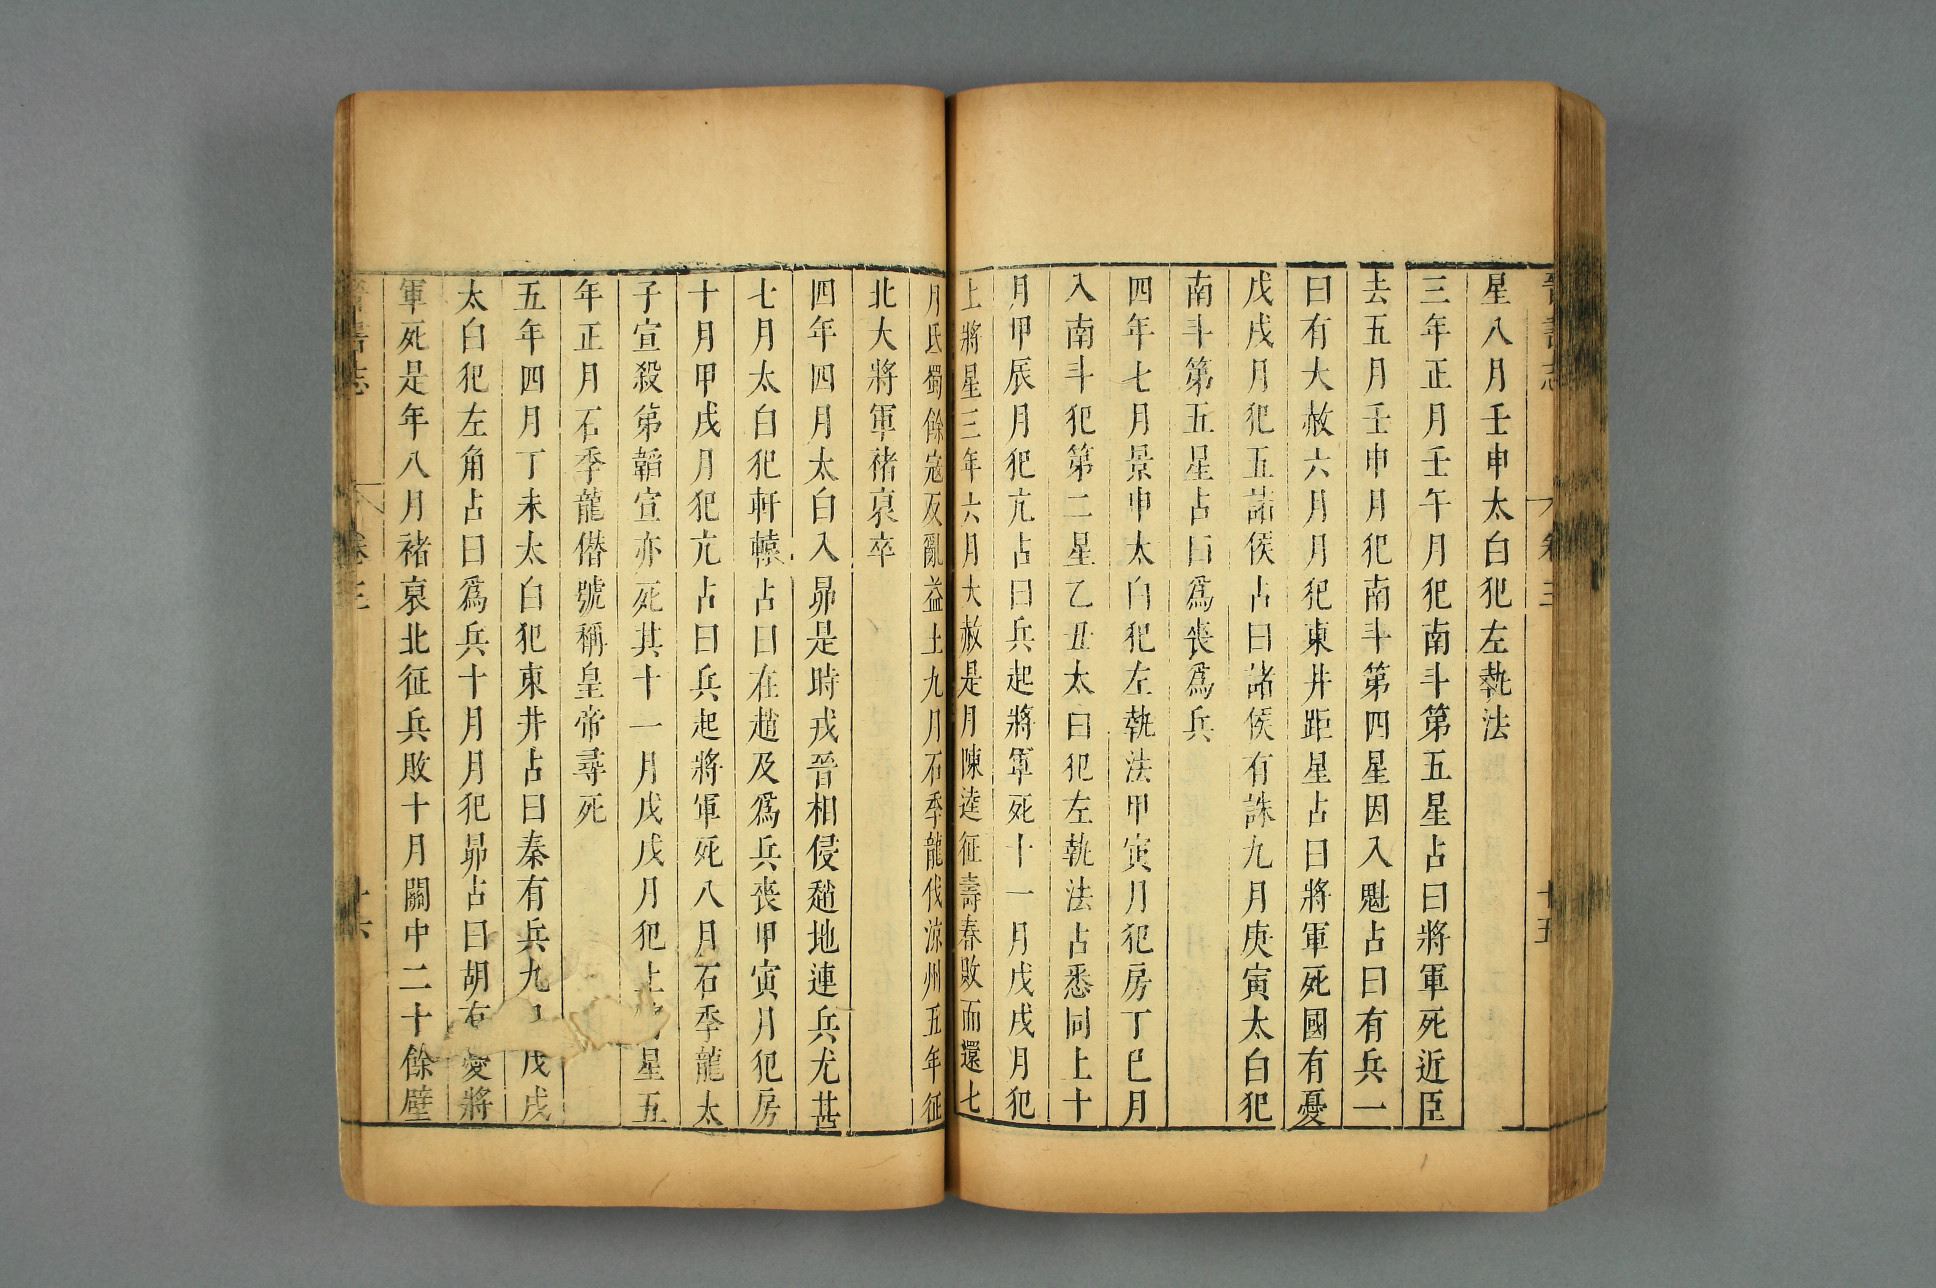 晉書志 卷三 十五
星八月壬申太白犯左執法
三年正月壬午月犯南斗第五星占曰將軍死近臣
去五月壬申月犯南斗第四星因入魁占曰有兵一
曰有大赦六月月犯東井距星占曰將軍死國有憂
戊戌月犯五諸侯占曰諸侯有誅九月庚寅太白犯
南斗第五星占曰爲喪爲兵
四年七月景申太白犯左執法甲寅月犯房丁巳月
入南斗犯第二星乙丑太白犯左執法占悉同上十
月甲辰月犯亢占曰兵起將軍死十一月戊戌月犯
上將星三年六月大赦是月陳逵征壽春敗而還七
月氐蜀餘寇反亂益土九月石季龍伐涼州五年征
北大將軍褚裒卒
四年四月太白入昴是時戎晉相侵趙地連兵尤甚
七月太白犯軒轅占曰在趙及爲兵喪甲寅月犯房
十月甲戌月犯亢占曰兵起將軍死八月石季龍太
子宣殺弟韜宣亦死其十一月戊戌月犯上星五
年正月石季龍僭號稱皇帝尋死
五年四月丁未太白犯東井占曰秦有兵九戊戌
太白犯左角占曰爲兵十月月犯昴占曰胡有憂將
軍死是年八月褚裒北征兵敗十月關中二十餘壁
晉書志 卷三 十六